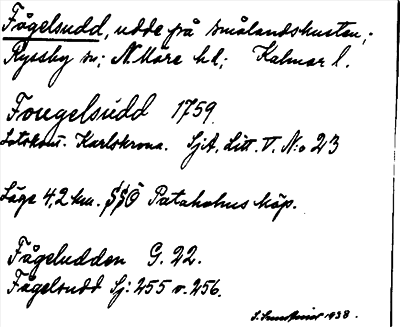 Fågelsudd, udde på smålandskusten;
Ryssby sn; N Möre hd; Kalmar l.
Fougelsudd 1759.
Lotskont. Karlskrona. SjA, Litt. V. N:o 23
Läge 4,2 km. SSÖ Pataholms köp.
Fågeludden G. 22.
Fågelsudd Sj: 255 o. 256.
1938.